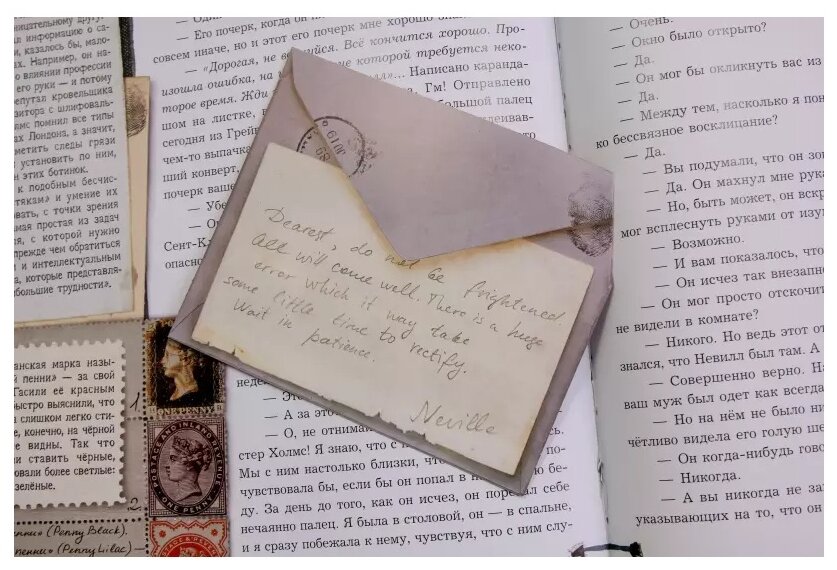 нительному другу.
л информацию о са-
, казалось бы, мало-
х. Например, он на-
о влиянии профессии
его руки — и потому
епутал кровельщика
зитора с шлифоваль-
лмс помнил все типы
ах Лондона, а значит,
метить следы грязи
установить по ним,
н этих ботинок.
к подобным бесчис-
тякам» и умение их
овать, с точки зрения
мая простая из задач
я, с которой нужно
прежде чем обратиться
и интеллектуальным
а, которые представля-
большие трудности».
анская марка назы-
пенни» — за свой
Гасили её красным
ыстро выяснили, что
слишком легко сти-
е, конечно, на чёрной
е видны. Так что
и ставить чёрные,
овали более светлые:
зелёные.
1.
ONE PENNY
POSTAGE AND INLAND REVENUE
ONE PENNY
2.
POSTAGE & REVENUE
(Penny Black).
пенни» (Penny Lilac) —
— Его почерк, когда он
совсем иначе, но и этот его почерк мне хорошо
— «Дорогая, не волнуйся. Всё кончится хорошо. Про-
изошла ошибка, на которой требуется неко-
торое время. Жди Написано каранда-
шом на листке, Гм! Отправлено
сегодня из Грейв большой палец
чем-то выпачка леивав-
ший конверт,
почерк ваше
— Убе
— О
Сент-К
опасно
Dearest, do not be frightened.
All will come well. There is a huge
error which it may take
some little time to rectify.
Wait in patience.
Neville
неде
— Это
— А за это
— О, не отнима
стер Холмс! Я знаю, что с
Мы с ним настолько близки, что по-
чувствовала бы, если бы он попал в ю бе-
ду. За день до того, как он исчез, он порезал себе
нечаянно палец. Я была в столовой, он — в спальне,
и я сразу побежала к нему, чувствуя, что с ним слу-
— Очень.
— Окно было открыто?
— Да.
— Он мог бы окликнуть вас из
— Да.
— Между тем, насколько я пон
ко бессвязное восклицание?
— Да.
— Вы подумали, что он зо
— Да. Он махнул мне рука
— Но, быть может, он вскр
мог всплеснуть руками от изу
— Возможно.
— И вам показалось, что
— Он исчез так внезапно
— Он мог просто отскочит
не видели в комнате?
— Никого. Но ведь этот от
знался, что Невилл был там. А
— Совершенно верно. На
ваш муж был одет как всегда
— Но на нём не было ни
чётливо видела его голую ше
— Он когда-нибудь гово
— Никогда.
— А вы никогда не за
указывающих на то, что он